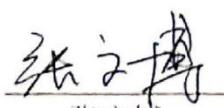 张文博